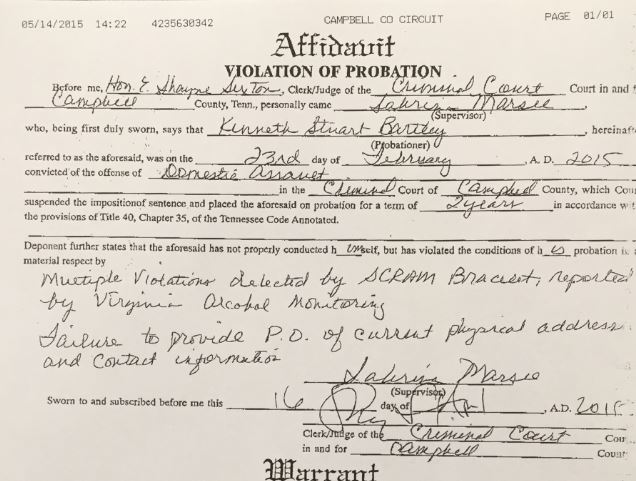 05/14/2015 14:22 4235630342 CAMPBELL CO CIRCUIT PAGE 01/01
Affidavit
VIOLATION OF PROBATION
Before me, Hon. E. Shayne Sexton, Clerk/Judge of the Criminal Court Court in and
Campbell County, Tenn., personally came Sabrina Marsee,
(Supervisor)
who, being first duly sworn, says that Kenneth Stuart Bartley, hereinaft
(Probationer)
referred to as the aforesaid, was on the 23rd day of February, A. D. 2015
convicted of the offense of Domestic Assault
in the Criminal Court of Campbell County, which Cou
suspended the impositionof sentence and placed the aforesaid on probation for a term of 2 years in accordance wit
the provisions of Title 40, Chapter 35, of the Tennessee Code Annotated.
Deponent further states that the aforesaid has not properly conducted h imself, but has violated the conditions of h is probation i
material respect by
Multiple Violations detected by SCRAM Bracelet, reported
by Virginia Alcohol Monitoring
Failure to provide P.O. of current physical address
and contact information
Sabrina Marsee
(Supervisor)
Sworn to and subscribed before me this 16 day of , A.D. 2015
Clerk/Judge of the Criminal Court Cour
in and for Campbell Count
Warrant